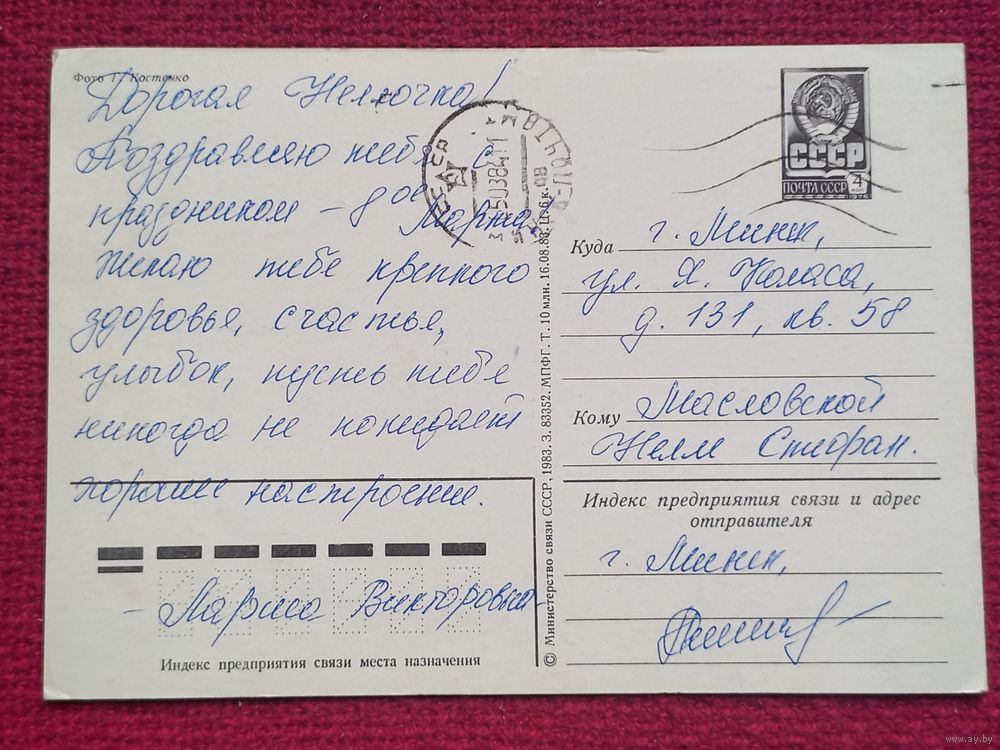 Фото Г. Костенко
Дорогая Неллочка!
Поздравляю тебя с
праздником – 8ое Марта,
Желаю тебе крепкого
здоровья, счастья,
улыбок, пусть тебе
никогда не покидает
хорошее настроение.
– Лариса Викторовна
Индекс предприятия связи места назначения
© Министерство связи СССР, 1983. З. 83352. МПФГ. Т. 10 млн. 16.08.83. Ц. 6 к.
СССР
ПОЧТА СССР
4
коп
1976
Куда г. Минск,
ул. Я. Коласа,
д. 131, кв. 58
Кому Масловской
Нелли Стефан.
Индекс предприятия связи и адрес
отправителя
г. Минск,
www.ay.by